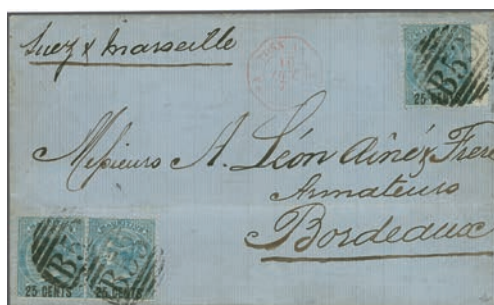 Suez & Marseille
25 CENTS
B53
Messieurs A. Léon Aîné & Frère
Armateurs
Bordeaux
B53
B53
25 CENTS
25 CENTS